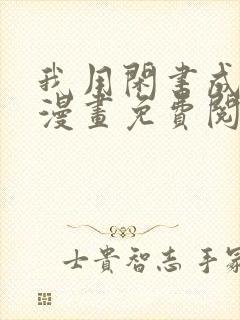 我用閑書成
漫畫免費閱
士貴智志 手冢